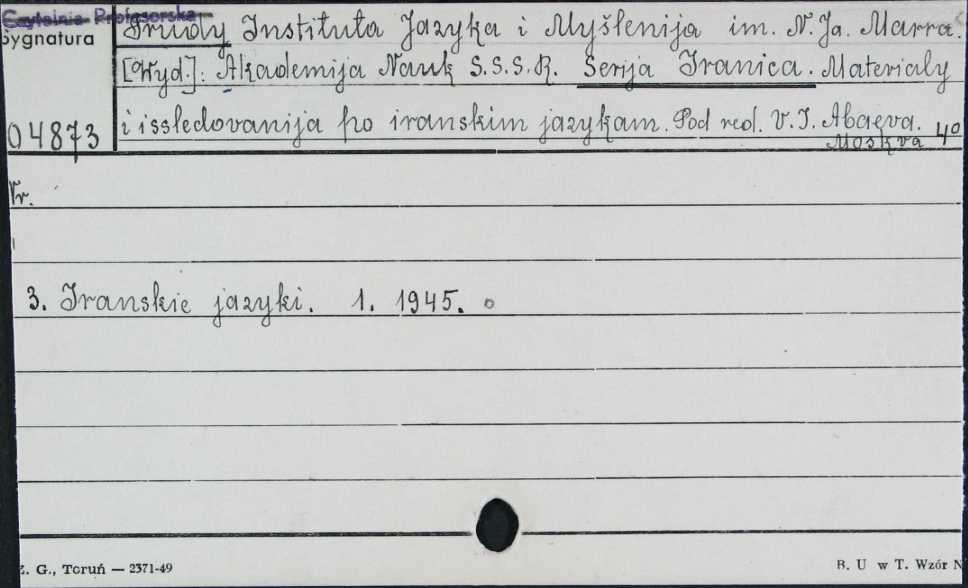 Czytelnia Profesorska
Sygnatura
Trudy Instituta Jazyka i Myšlenija im. N. Ja. Marra.
[Wyd.]: Akademija Nauk S.S.S.R. Serija Iranica. Materialy
04873
i issledovanija po iranskim jazykam. Pod red. V. I. Abaeva. 4°
Moskva
Nr.
3. Iranskie jazyki. 1. 1945.
Z. G., Toruń — 2371-49
B. U w T. Wzór N